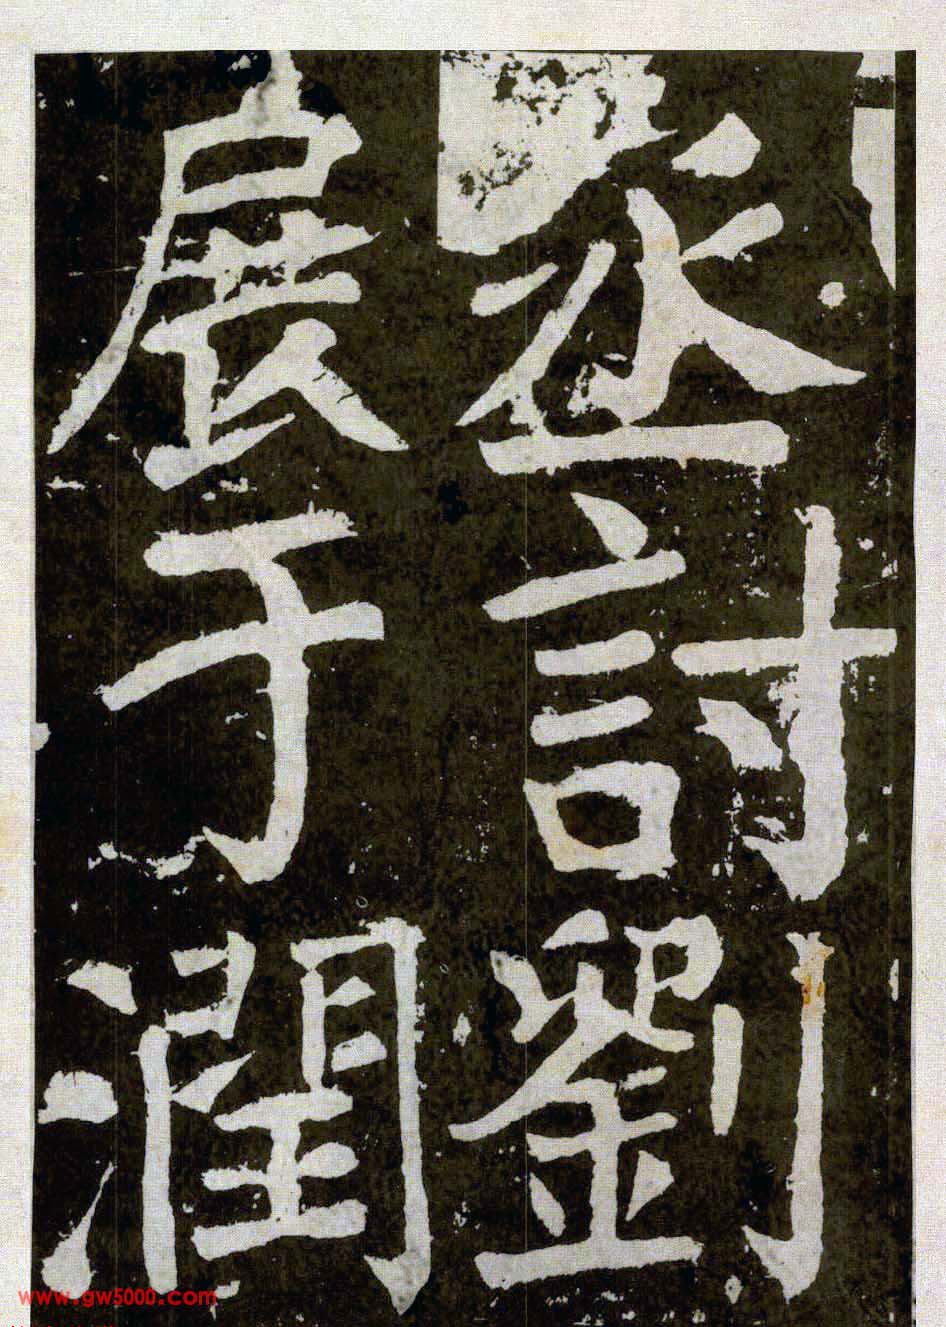 丞討劉
展于潤
www.gw5000.com